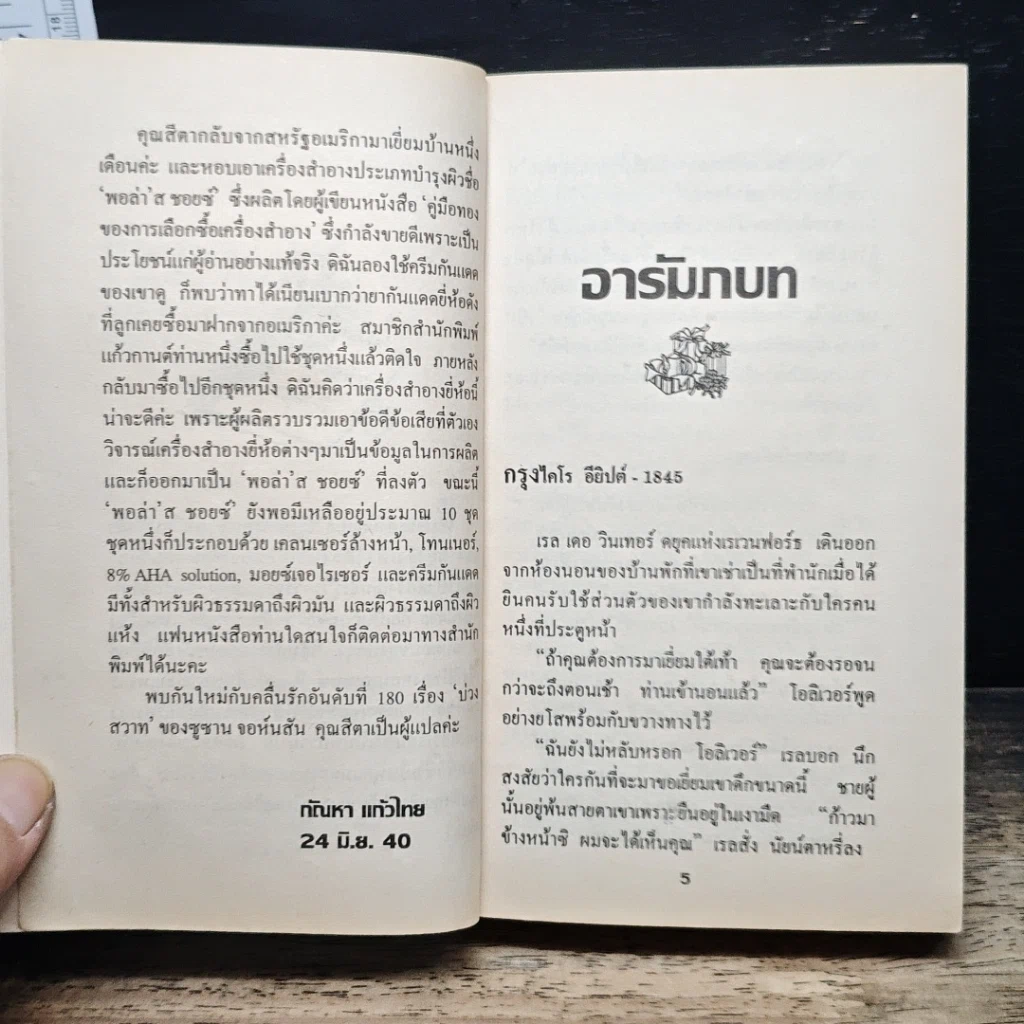 คุณสีตากลับจากสหรัฐอเมริกามาเยี่ยมบ้านหนึ่ง
เดือนค่ะ และหอบเอาเครื่องสำอางประเภทบำรุงผิวชื่อ
‘พอล่า’ส ชอยซ์’ ซึ่งผลิตโดยผู้เขียนหนังสือ ‘คู่มือทอง
ของการเลือกซื้อเครื่องสำอาง’ ซึ่งกำลังขายดีเพราะเป็น
ประโยชน์แก่ผู้อ่านอย่างแท้จริง ดิฉันลองใช้ครีมกันแดด
ของเขาดู ก็พบว่าทาได้เนียนเบากว่ายากันแดดยี่ห้อดัง
ที่ลูกเคยซื้อมาฝากจากอเมริกาค่ะ สมาชิกสำนักพิมพ์
แก้วกานต์ท่านหนึ่งซื้อไปใช้ชุดหนึ่งแล้วติดใจ ภายหลัง
กลับมาซื้อไปอีกชุดหนึ่ง ดิฉันคิดว่าเครื่องสำอางยี่ห้อนี้
น่าจะดีค่ะ เพราะผู้ผลิตรวบรวมเอาข้อดีข้อเสียที่ตัวเอง
วิจารณ์เครื่องสำอางยี่ห้อต่างๆมาเป็นข้อมูลในการผลิต
และก็ออกมาเป็น ‘พอล่า’ส ชอยซ์’ ที่ลงตัว ขณะนี้
‘พอล่า’ส ชอยซ์’ ยังพอมีเหลืออยู่ประมาณ 10 ชุด
ชุดหนึ่งก็ประกอบด้วย เคลนเซอร์ล้างหน้า, โทนเนอร์,
8% AHA solution, มอยซ์เจอไรเซอร์ และครีมกันแดด
มีทั้งสำหรับผิวธรรมดาถึงผิวมัน และผิวธรรมดาถึงผิว
แห้ง แฟนหนังสือท่านใดสนใจก็ติดต่อมาทางสำนัก
พิมพ์ได้นะคะ
พบกันใหม่กับคลื่นรักอันดับที่ 180 เรื่อง ‘บ่วง
สวาท’ ของซูซาน จอห์นสัน คุณสีตาเป็นผู้แปลค่ะ
กัณหา แก้วไทย
24 มิ.ย. 40
อารัมภบท
กรุงไคโร อียิปต์ - 1845
เรล เดอ วินเทอร์ ดยุคแห่งเรเวนฟอร์ธ เดินออก
จากห้องนอนของบ้านพักที่เขาเช่าเป็นที่พำนักเมื่อได้
ยินคนรับใช้ส่วนตัวของเขากำลังทะเลาะกับใครคน
หนึ่งที่ประตูหน้า
“ถ้าคุณต้องการมาเยี่ยมใต้เท้า คุณจะต้องรอจน
กว่าจะถึงตอนเช้า ท่านเข้านอนแล้ว” โอลิเวอร์พูด
อย่างยโสพร้อมกับขวางทางไว้
“ฉันยังไม่หลับหรอก โอลิเวอร์” เรลบอก นึก
สงสัยว่าใครกันที่จะมาขอเยี่ยมเขาดึกขนาดนี้ ชายผู้
นั้นอยู่พ้นสายตาเขาเพราะยืนอยู่ในเงามืด “ก้าวมา
ข้างหน้าซิ ผมจะได้เห็นคุณ” เรลสั่ง นัยน์ตาหรี่ลง
5